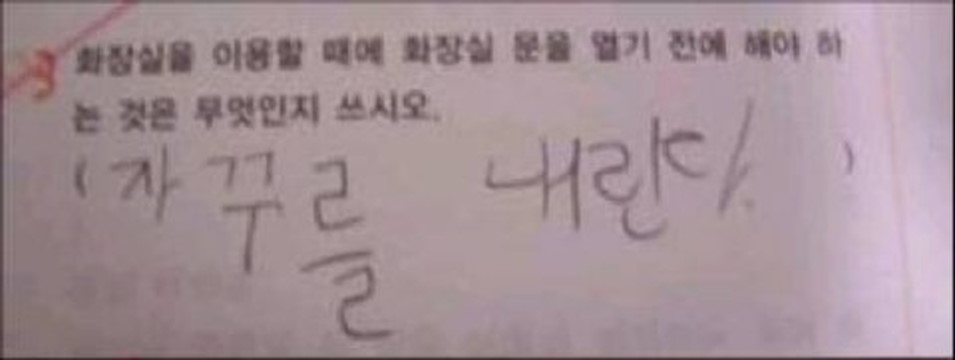 3 화장실을 이용할 때에 화장실 문을 열기 전에 해야 하
는 것은 무엇인지 쓰시오.
( 자꾸를 내린다. )